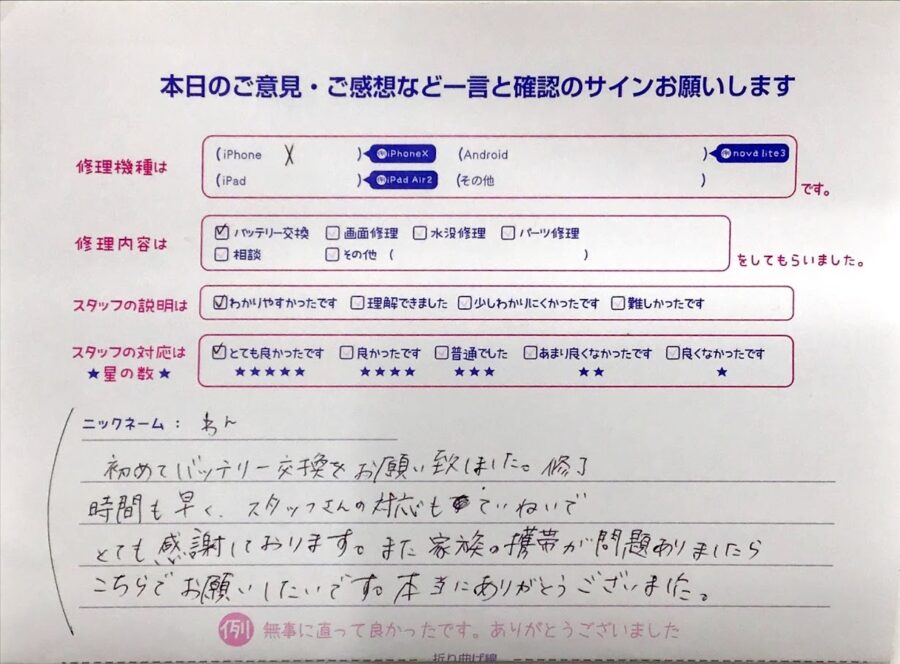 本日のご意見・ご感想など一言と確認のサインお願いします
修理機種は
(iPhone X ) 例iPhoneX (Android ) 例nova lite3
(iPad ) 例iPad Air2 (その他 ) です。
修理内容は
☑バッテリー交換 □画面修理 □水没修理 □パーツ修理
□相談 □その他 ( ) をしてもらいました。
スタッフの説明は ☑わかりやすかったです □理解できました □少しわかりにくかったです □難しかったです
スタッフの対応は ☑とても良かったです □良かったです □普通でした □あまり良くなかったです □良くなかったです
★星の数★ ★★★★★ ★★★★ ★★★ ★★ ★
ニックネーム: わん
初めてバッテリー交換をお願い致しました。修了
時間も早く、スタッフさんの対応もていねいで
とても感謝しております。また家族の携帯が問題ありましたら
こちらでお願いしたいです。本当にありがとうございました。
例 無事に直って良かったです。ありがとうございました
折り曲げ線